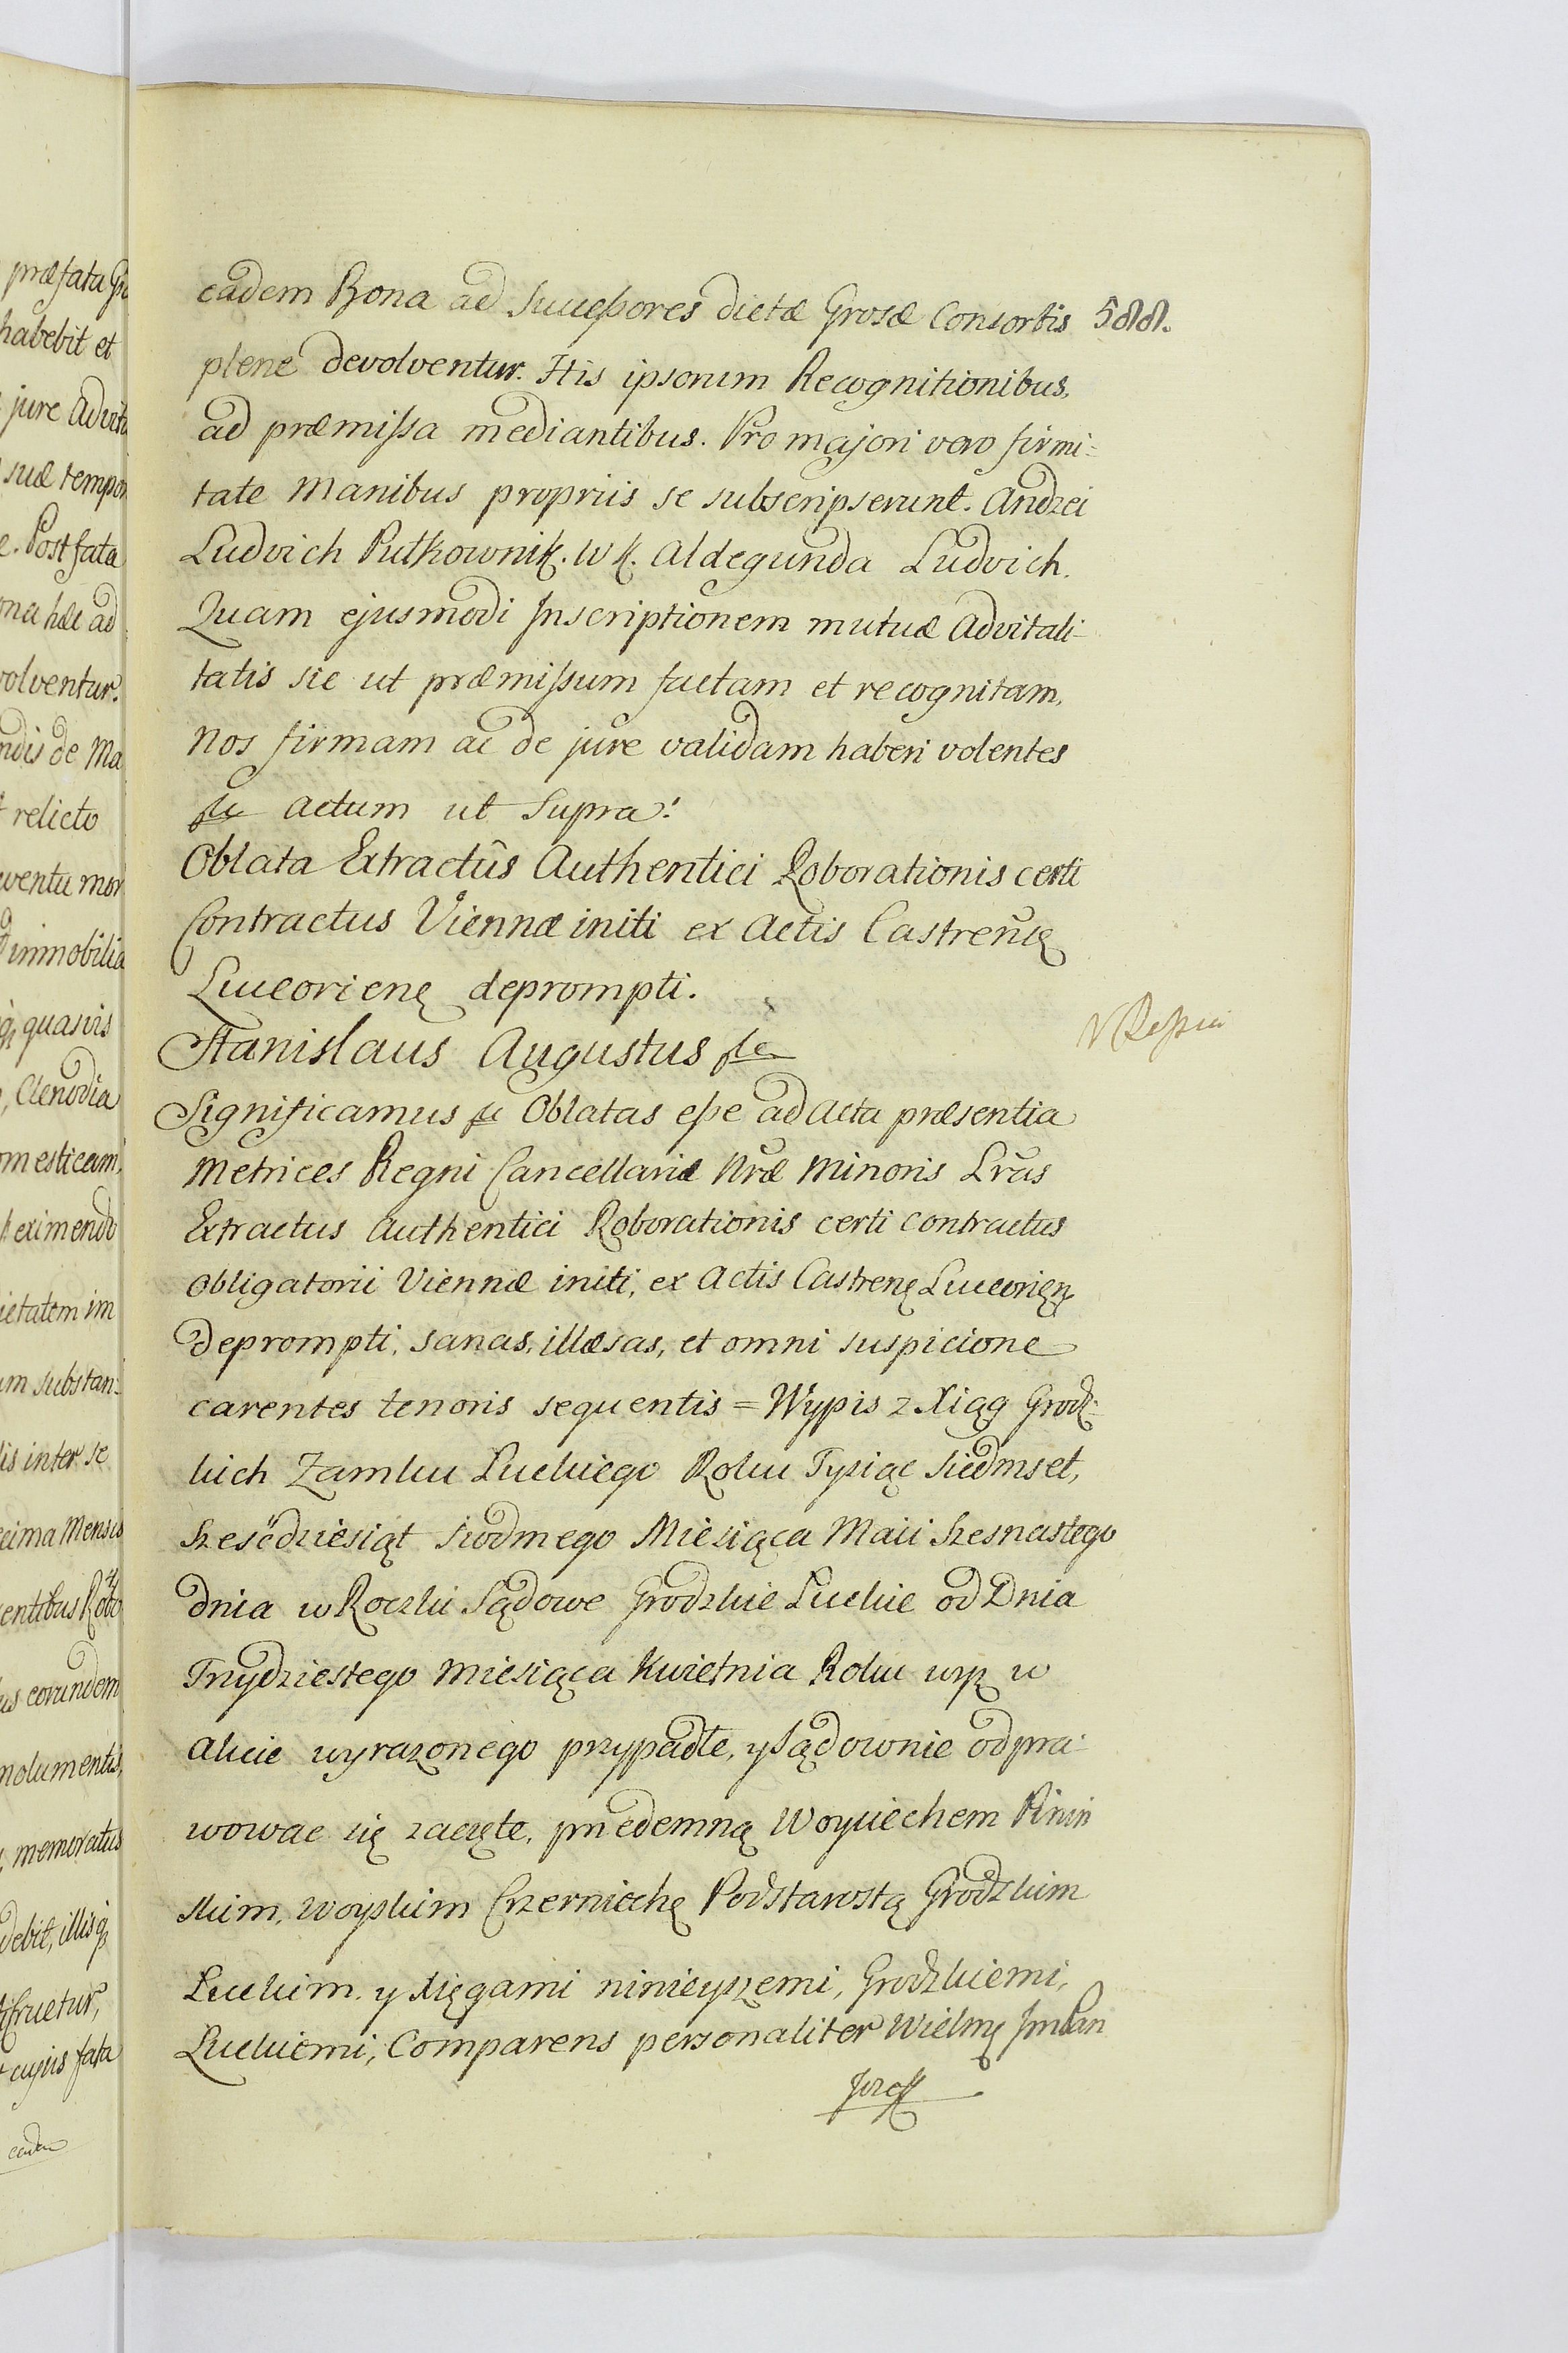 præfata
habebit et
jure Advita
suæ tempor
Post fata
hæc ad
volventur.
ndis de Ma
relicto
ventu mor
immobilia
quasvis
Clenodia
omesticam,
eximendo
ietatem im
um substan-
is inter se
cima Mensis
entibus
us eorundem
molumentis,
memoratus
debit, illisq
fruetur,
cujus fata
eadem
588.
eadem Bona ad Sucessores dictæ Grosæ Consortis
plene devolventur. His ipsorum Recognitionibus,
ad præmissa mediantibus. Pro majori vero firmi=
tate Manibus propriis se subscripserunt. Andrzei
Ludvich Pułkownik. W K. Aldegunda Ludvich.
Quam ejusmodi Inscriptionem mutuæ Advitali=
tatis sic ut præmissum factam et recognitam,
Nos firmam ac de jure validam haberi volentes
etc Actum ut Supra.
Oblata Extractûs Authentici Roborationis certi
Contractus Viennæ initi ex Actis Castrensiu
Luceorien deprompti.
Stanislaus Augustus etc
Significamus etc Oblatas esse ad Acta præsentia
Metrices Regni Cancellariæ Nræ Minoris Lras
Extractus Authentici Roborationis certi Contractus
Obligatorii Viennæ initi, ex Actis Castren Luceorien
deprompti, sanas, illæsas, et omni suspicione
carentes tenoris sequentis = Wypis z Xiąg Grodz=
kich Zamku Luckiego Roku Tysiąc Siedmset,
Szesćdziesiąt Siodmego Miesiąca Maii Szesnastego
dnia w Roczki Sądowe Grodzkie Luckie od Dnia
Trzydziestego Miesiąca Kwietnia Roku wyz w
Akcie wyrazonego przypadłe, y Sądownie odpra=
wowac się zaczęte, przedemną Woyciechem Rinin
skim, Woyskim Czerniech Podstarostą Grodzkim
Luckim, y Xięgami ninieyszemi, Grodzkiemi,
Luckiemi, Comparens personaliter Wielm JmPan
Jozeff